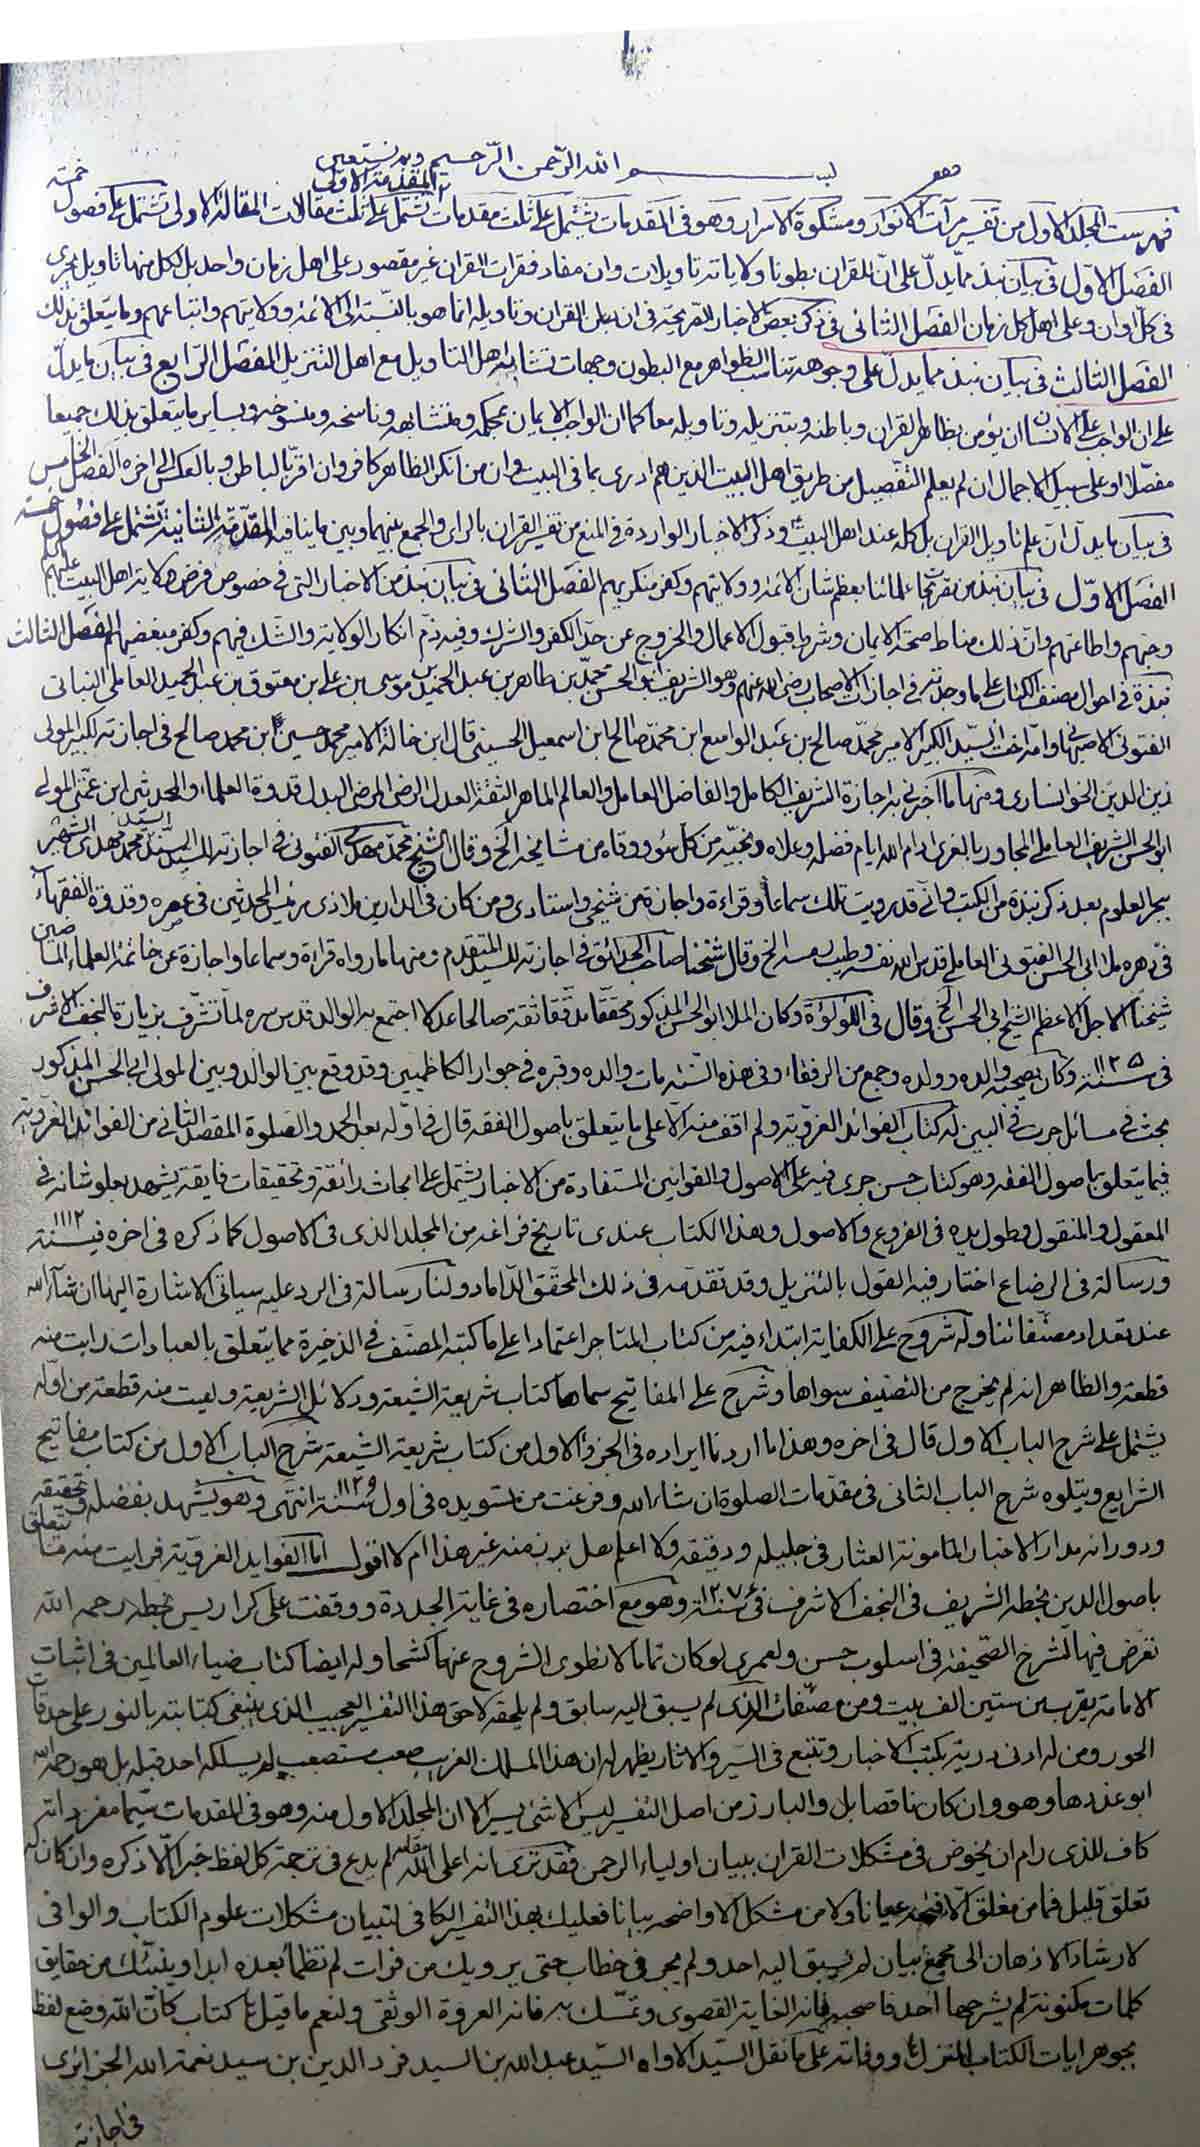 بسم الله الرحمن الرحيم وبه نستعين
فهرست المجلد الاول من تفسير مرآت الانوار ومشكوة الاسرار وهو فى المقدمات يشتمل على ثلث مقدمات المقدمة الاولى تشتمل على ثلث مقالات المقالة الاولى تشتمل على فصول خمسة
الفصل الاول فى بيان نبذ مما يدل على ان للقران بطونا ولاياته تاويلات وان مفاد فقرات القران غير مقصور على اهل زمان واحد بل لكل منها تاويل يجرى
فى كل اوان وعلى اهل كل زمان الفصل الثانى فى ذكر بعض الاخبار الصريحة فى ان بطن القران وتاويله انما هو بالنسبة الى الائمة وولايتهم واتباعهم وما يتعلق بذلك
الفصل الثالث فى بيان نبذ مما يدل على وجوه تناسب الظواهر مع البطون وجهات تشابه اهل التاويل مع اهل التنزيل الفصل الرابع فى بيان ما يدل
على ان الواجب على الانسان ان يؤمن بظاهر القران وباطنه وبتنزيله وتاويله معا كما ان الواجب الايمان بمحكمه ومتشابهه وناسخه ومنسوخه وبساير ما يتعلق بذلك جميعا
مفصلا او على سبيل الاجمال ان لم يعلم التفصيل من طريق اهل البيت الذين هم ادرى بما فى البيت وان من انكر الظاهر كافر وان اقر بالباطن وبالعكس الى اخره الفصل الخامس
فى بيان ما يدل ان علم تاويل القران بل كله عند اهل البيت وذكر الاخبار الواردة فى المنع من تفسير القران بالراى والجمع بينهما وبين ما ينافيه المقدمة الثانية تشتمل على فصول خمسة
الفصل الاول فى بيان نبذ من تصريحات علمائنا بعظم شان الائمة وولايتهم وكفر منكريهم الفصل الثانى فى بيان نبذ من الاخبار التى فى خصوص فرض ولاية اهل البيت عليهم السلام
وحبهم واطاعتهم وان ذلك مناط صحة الايمان وشرط قبول الاعمال والخروج عن حد الكفر والشرك وفيه ذم انكار الولاية والشك فيهم وكفر مبغضيهم الفصل الثالث
نبذة فى احوال مصنف الكتاب على ما وجدته فى اجازات الاصحاب رضى الله عنهم وهو الشريف ابو الحسن محمد بن طاهر بن عبد الحميد بن موسى بن على بن معتوق بن عبد الحميد العاملى النباتى
الفتونى الاصبهانى وامه اخت السيد الكبير الامير محمد صالح بن عبد الواسع ابن محمد صالح ابن اسمعيل الحسينى قال ابن خالة الامير محمد حسين ابن محمد صالح فى اجازته الكبير للمولى
زين الدين الخوانسارى ومنها ما اخبرنى به اجازة الشريف الكامل والفاضل العامل والعالم الماهر الثقة العدل الرضى المرضى البدل قدوة العلماء والمحدثين ابن عمتى المولى
ابو الحسن الشريف العاملى المجاور بالغرى ادام الله ايام فضله وعلاه ونجيه من كل سوء ووقاه من مشايخه الخ وقال الشيخ محمد مهدى الفتونى فى اجازته للسيد السند السيد محمد مهدى الشهير
ببحر العلوم بعد ذكر نبذة من الكتب وانى قد رويت تلك سماعا وقراءة واجازة من شيخى واستادى ومن كان فى الدارين ملاذى رئيس المحدثين فى عصره وقدوة الفقهاء
فى دهره ملا ابى الحسن الفتونى العاملى قدس الله نفسه وطيب رمسه الخ وقال شيخنا صاحب الحدائق فى اجازته للسيد المتقدم ومنها ما رواه قراءة وسماعا واجازة عن خاتمة العلماء الماضين
شيخنا الاجل الاعظم الشيخ ابى الحسن الخ وقال فى اللؤلؤة وكان الملا ابو الحسن المذكور محققا مدققا ثقة صالحا عدلا اجتمع به الوالد قدس سره لما تشرف بزيارة النجف الاشرف
فى سنة ١١٢٥ وكان بصحبه والده وولده وجمع من الرفقاء وفى هذه السنة مات والده وقبره فى جوار الكاظمين وقد وقع بين الوالد وبين المولى ابى الحسن المذكور
بحث فى مسائل جرت فى البين له كتاب الفوائد الغروية ولم اقف منه الا على ما يتعلق باصول الفقه قال فى اوله بعد الحمد والصلوة المقصد الثانى من الفوائد الغروية
فيما يتعلق باصول الفقه وهو كتاب حسن جرى فيه على الاصول والقوانين المستفادة من الاخبار يشتمل على ابحاث رائقة وتحقيقات فايقة يشهد بعلو شانه فى
المعقول والمنقول وطول يده فى الفروع والاصول وهذا الكتاب عندى تاريخ فراغه من المجلد الذى فى الاصول كما ذكره فى اخره فى سنة ١١١٢
ورسالة فى الرضاع اختار فيه القول بالتنزيل وقد تقدمه فى ذلك المحقق الداماد ولنا رسالة فى الرد عليه سياتى الاشارة اليها ان شاء الله
عند تعداد مصنفاتنا وله شروح على الكفاية ابتداء فيه من كتاب المتاجر اعتمادا على ما كتبه المصنف فى الذخيرة مما يتعلق بالعبادات رايت منه
قطعة والظاهر انه لم يخرج من التصنيف سواها وشرح على المفاتيح سماها كتاب شريعة الشيعة ودلائل الشريعة ورايت منه قطعة من اوله
يشتمل على شرح الباب الاول قال فى اخره وهذا ما اردنا ايراده فى الجزؤ الاول من كتاب شريعة الشيعة شرح الباب الاول من كتاب مفاتيح
الشرايع ويتلوه شرح الباب الثانى فى مقدمات الصلوة ان شاء الله وفرغت من تسويده فى اول سنة ١١٢٩ انتهى وهو يشهد بفضله وتحقيقه
ودورانه مدار الاخبار المامونة العثار فى جليله ودقيقه ولا اعلم هل برز منه غير هذا ام لا اقول اما الفوايد الغروية فرايت منه ما يتعلق
باصول الدين بخطه الشريف فى النجف الاشرف فى سنة ١٢٧٦ وهو مع اختصاره فى غاية الجودة ووقفت على كراريس بخطه رحمه الله
تعرض فيها لشرح الصحيفة فى اسلوب حسن ولعمرى لو كان تماما لانطوى الشروح عنها كشحا وله ايضا كتاب ضياء العالمين فى اثبات
الامامة يقرب من ستين الف بيت ومن مصنفاته الذى لم يسبق اليه سابق ولم يلحقه لاحق هذا التفسير العجيب الذى ينبغى كتابته بالنور على حدقات
الحور ومن له ادنى دربة بكتب الاخبار وتتبع فى السير والاثار يظهر له ان هذا المسلك الغريب صعب مستصعب لم يسلكه احد قبله بل هو رحمه الله
ابو عذرها وهو وان كان ناقصا بل والبارز من اصل التفسير ليس الا شئ يسير الا ان المجلد الاول منه وهو فى المقدمات سيما مفرداته
كاف للذى رام ان يخوض فى مشكلات القران ببيان اولياء الرحمن فقد تراه اعلى الله مقامه لم يدع فى ترجمة كل لفظ خبرا الا ذكره وان كان له
تعلق قليل فما من مغلق الا فتحه عيانا ولا من مشكل الا واضحه بيانا فعليك بهذا التفسير الكافى لتبيان مشكلات علوم الكتاب والوافى
لارشاد الاذهان الى مجمع بيان لم يسبق اليه احد ولم يجر فى خطاب حتى يرويك من فرات لم تظمأ بعده ابدا وينبئك من حقايق
كلمات مكنونة لم يشرحها احد فاصحبه فانه الغاية القصوى وتمسك به فانه العروة الوثقى ولنعم ما قيل كتاب كان الله وضع لفظ
بجوهر ايات الكتاب المنزل ووفاته على ما نقل السيد الاواه السيد عبد الله بن السيد نور الدين بن سيد نعمة الله الجزائرى
فى اجازته